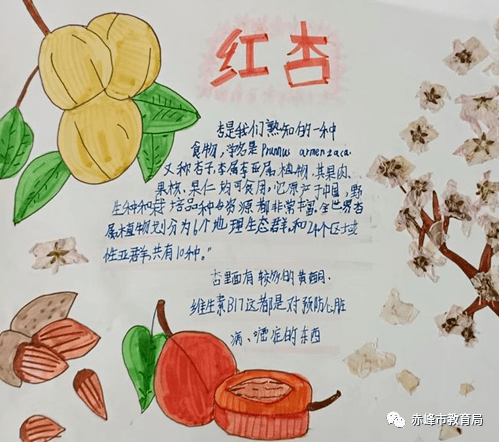 红杏
杏是我们熟知的一种
食物,学名是Prunus armeniaca.
又称杏子,李属李亚属植物,其果肉、
果核、果仁均可食用,它原产于中国,野
生种和栽培品种自资源都非常丰富,全世界杏
属木植物划分为6个地理生态群和24个区域
性亚群,共有10种。"
杏里面有较好的黄酮、
维生素B17这都是对预防心脏
病、癌症的东西
赤峰市教育局